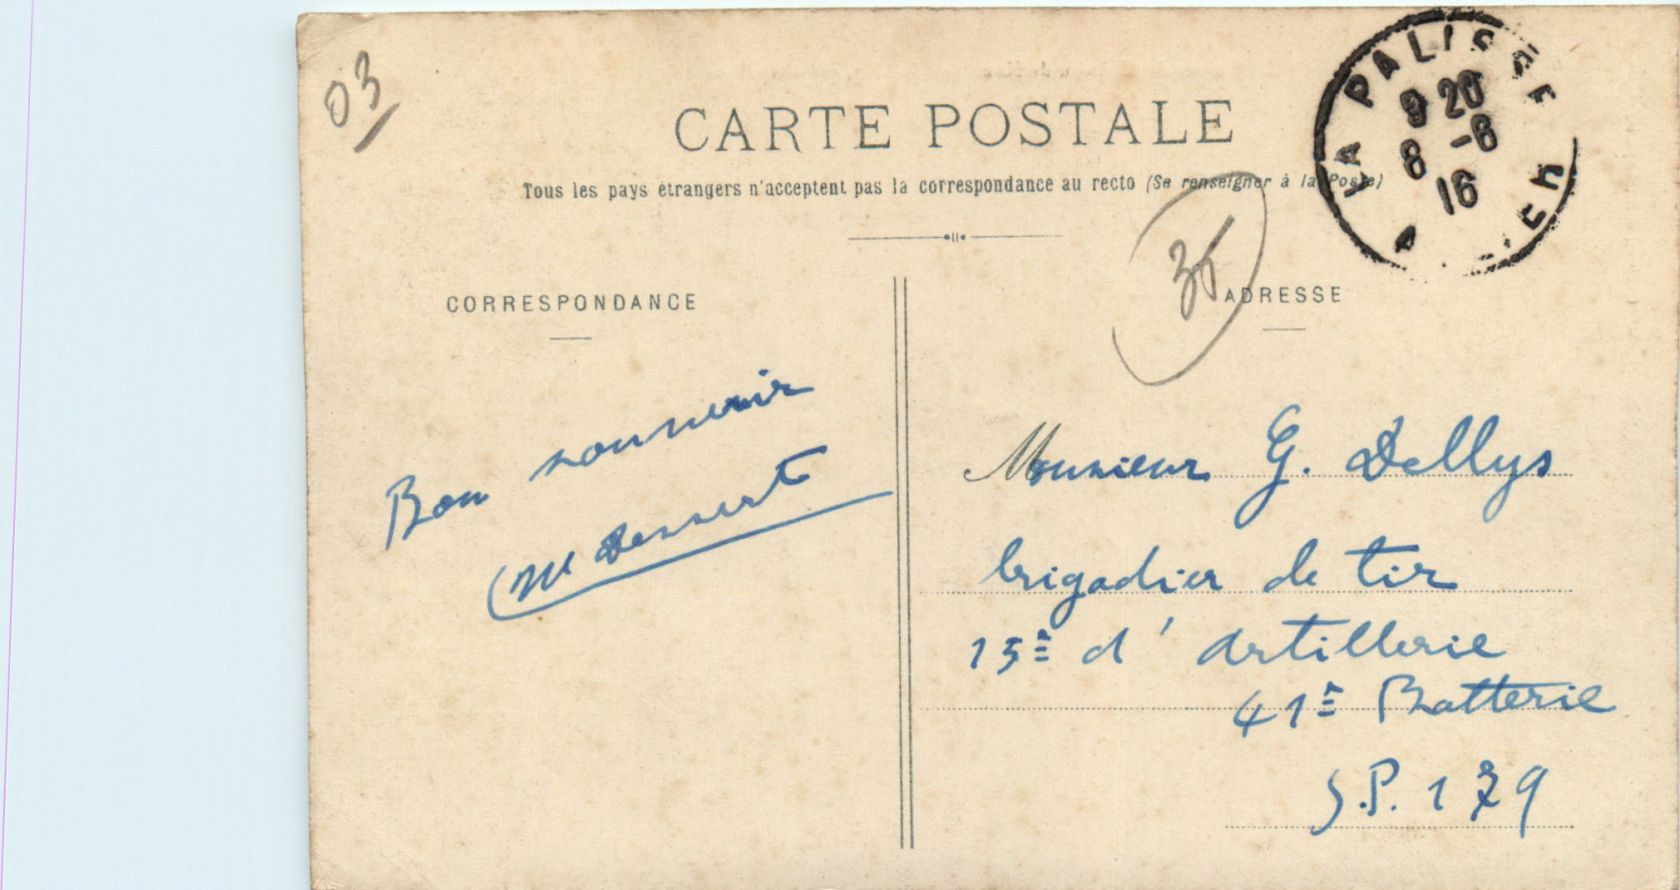 03
CARTE POSTALE
Tous les pays étrangers n'acceptent pas la correspondance au recto (Se renseigner à la Poste)
LA PALISSE
9 20
8 -6
16
35
CORRESPONDANCE
ADRESSE
Bon souvenir
M Dessert
Monsieur G. Dellys
brigadier de tir
15e d'Artillerie
41e Batterie
S.P. 179